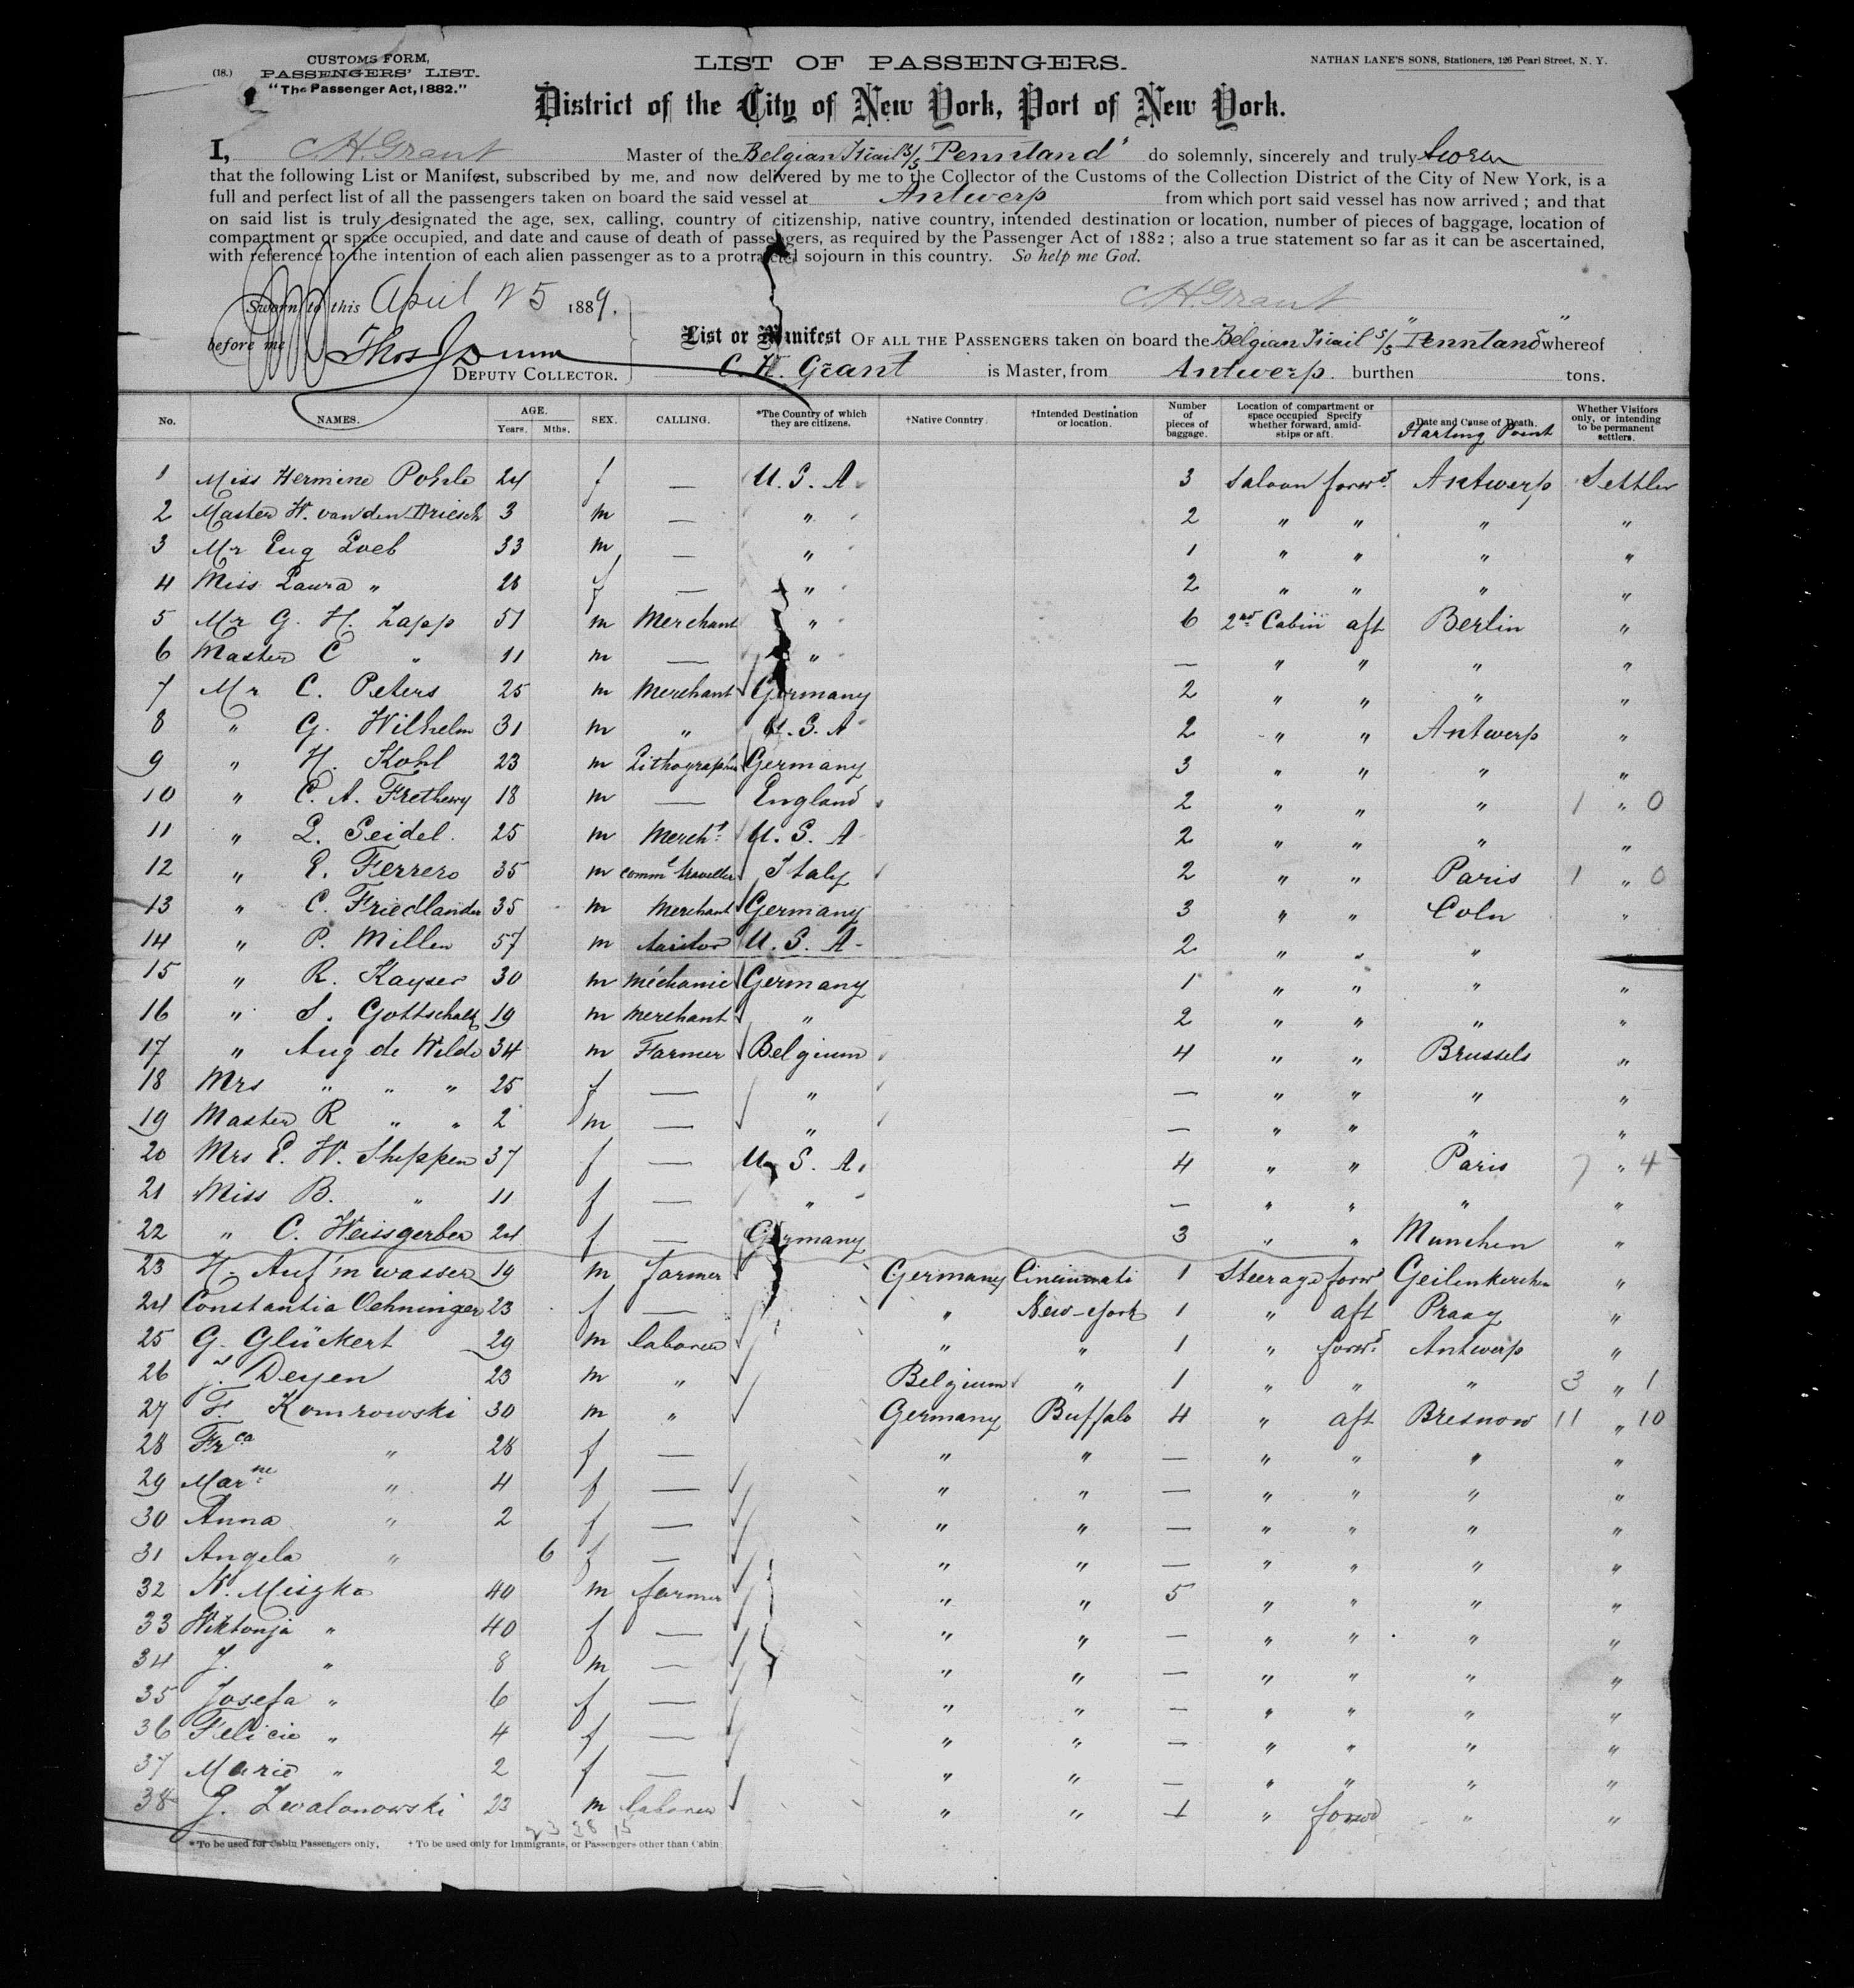 (18.)
CUSTOMS FORM,
PASSENGERS' LIST.
"The Passenger Act, 1882."
LIST OF PASSENGERS.
NATHAN LANE'S SONS, Stationers, 126 Pearl Street, N. Y.
District of the City of New York, Port of New York.
I, C.H. Grant Master of the Belgian Mail S/S "Pennland" do solemnly, sincerely and truly swear
that the following List or Manifest, subscribed by me, and now delivered by me to the Collector of the Customs of the Collection District of the City of New York, is a
full and perfect list of all the passengers taken on board the said vessel at Antwerp from which port said vessel has now arrived ; and that
on said list is truly designated the age, sex, calling, country of citizenship, native country, intended destination or location, number of pieces of baggage, location of
compartment or space occupied, and date and cause of death of passengers, as required by the Passenger Act of 1882 ; also a true statement so far as it can be ascertained,
with reference to the intention of each alien passenger as to a protracted sojourn in this country. So help me God.
Sworn to this April 25 1889.
C.H. Grant
before me Thos Dunn
DEPUTY COLLECTOR.
List or Manifest OF ALL THE PASSENGERS taken on board the Belgian Mail S/S "Pennland" whereof
C. H. Grant is Master, from Antwerp. burthen tons.
No. NAMES. AGE. Years. Mths. SEX. CALLING. *The Country of which they are citizens. †Native Country. †Intended Destination or location. Number of pieces of baggage. Location of compartment or space occupied Specify whether forward, amidships or aft. Date and Cause of Death. Starting Point Whether Visitors only, or intending to be permanent settlers.
1 Miss Hermine Pohle 24 f — U. S. A. 3 Saloon forwd. Antwerp Settler
2 Master W. van den Driesch 3 m — " 2 " " " "
3 Mr Eug Loeb 33 m — " 1 " " " "
4 Miss Laura " 28 f — " 2 " " " "
5 Mr G. H. Zapp 51 m Merchant " 6 2nd Cabin aft Berlin "
6 Master C " 11 m — " — " " " "
7 Mr C. Peters 25 m Merchant Germany 2 " " " "
8 " G. Wilhelm 31 m " U. S. A 2 " " Antwerp "
9 " H. Kohl 23 m Lithographer Germany 3 " " " "
10 " C. A. Frethewy 18 m — England 2 " " " 1 " 0
11 " L. Seidel. 25 m Mercht. U. S. A 2 " " " "
12 " E. Ferrero 35 m comml traveller Italy 2 " " Paris 1 " 0
13 " C. Friedlander 35 m Merchant Germany 3 " " Coln "
14 " P. Millen 57 m U. S. A. 2 " " "
15 " R. Kayser 30 m mechanic Germany 1 " " " "
16 " S. Gottschalk 19 m merchant " 2 " " " "
17 " Aug de Wilde 34 m Farmer Belgium 4 " " Brussels "
18 Mrs " " " 25 f — " — " " " "
19 Master R " " 2 m — " — " " " "
20 Mrs E. W. Shippen 37 f — U. S. A. 4 " " Paris 7 " 4
21 Miss B. " 11 f — " — " " " "
22 " C. Weissgerber 24 f — Germany 3 " " Munchen "
23 H. Auf'm wasser 19 m farmer Germany Cincinnati 1 Steerage forwd Geilenkirchen "
24 Constantia Oehninger 23 f — " New-York 1 " aft Praag "
25 G. Glückert 29 m laborer " " 1 " forwd. Antwerp "
26 J. Deyen 23 m " Belgium " 1 " " " 3 " 1
27 F. Komrowski 30 m " Germany Buffalo 4 " aft Bresnow 11 " 10
28 Frca " 28 f — " " — " " " "
29 Marne " 4 f — " " — " " " "
30 Anna " 2 f — " " — " " " "
31 Angela " 6 f — " " — " " " "
32 N. Miszka 40 m farmer " " 5 " " " "
33 Wiktonja " 40 f — " " — " " " "
34 J. " 8 m — " " — " " " "
35 Josefa " 6 f — " " — " " " "
36 Felicie " 4 f — " " — " " " "
37 Marie " 2 f — " " — " " " "
38 J. Zwalonowski 23 m laborer " " 1 " forwd " "
23 38 15
*To be used for Cabin Passengers only. †To be used only for Immigrants, or Passengers other than Cabin